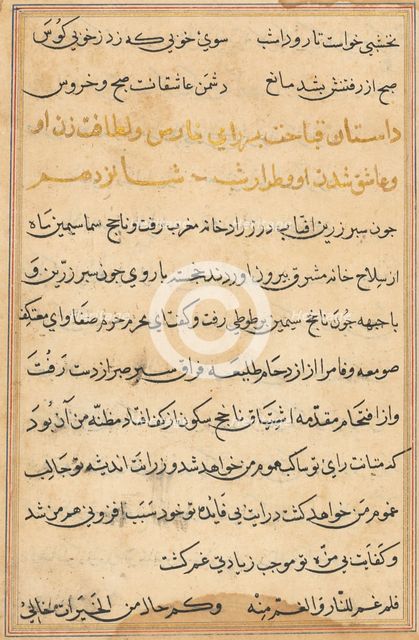 نخشبی خواست تا رود امشب سوی خوبی که زد ز خوبی کوس
صبح از رفتنش بشد مانع دشمن عاشقانت صبح و خروس
داستان قباحت بی رای فارس و لطافت زن او
و عاشق شدن او و طرار شب شانزدهم
چون سپر زرین افتاب در زرادخانه مغرب رفت و ناچخ سیمین ماه
از سلاح خانه مشرق بیرون اوردند خجسته با روی چون سپر زرین و
با جبهه چون ناچخ سیمین بر طوطی رفت و گفت ای محرم حرم صفا و ای معتکف
صومعه وفا مرا از ازدحام طلیعه فراق سپر صبر از دست رفت
و از اقتحام مقدمه اشتیاق ناچخ سکون از کف افتاد مظنه من آن بود
که متانت رای تو ساکب هموم من خواهد شد و رزانت اندیشه تو جالب
غموم من خواهد گشت درایت بی فایده تو خود سبب افزونی هم من شد
و کفایت بی مزه تو موجب زیادتی غم گشت
فلم غم للنار و الغم منه وکم حال من الخیرات خالی